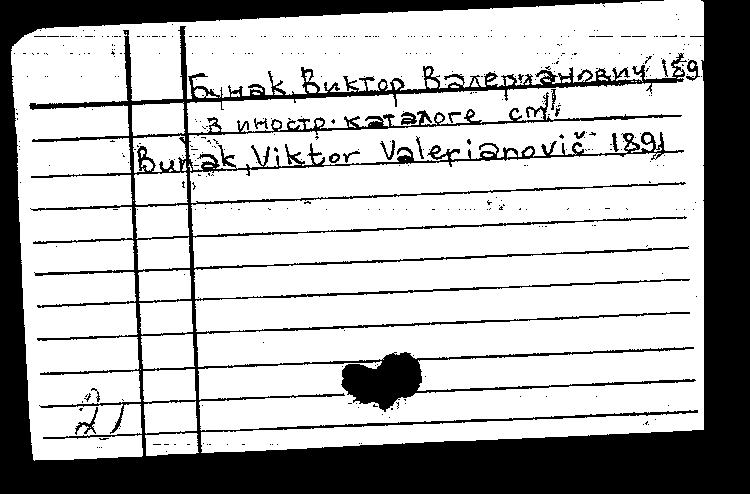 Бунак, Виктор Валерианович 1891
в иностр. каталоге см.
Bunak, Viktor Valerianovič 1891
2)